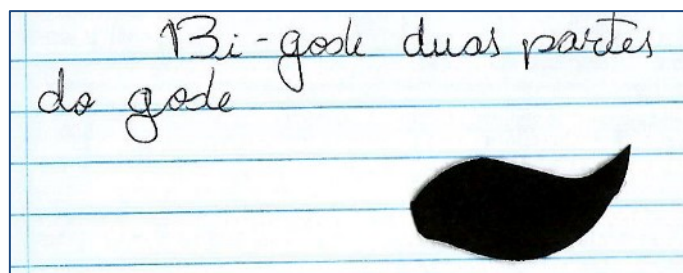 Bi-gode duas partes
do gode